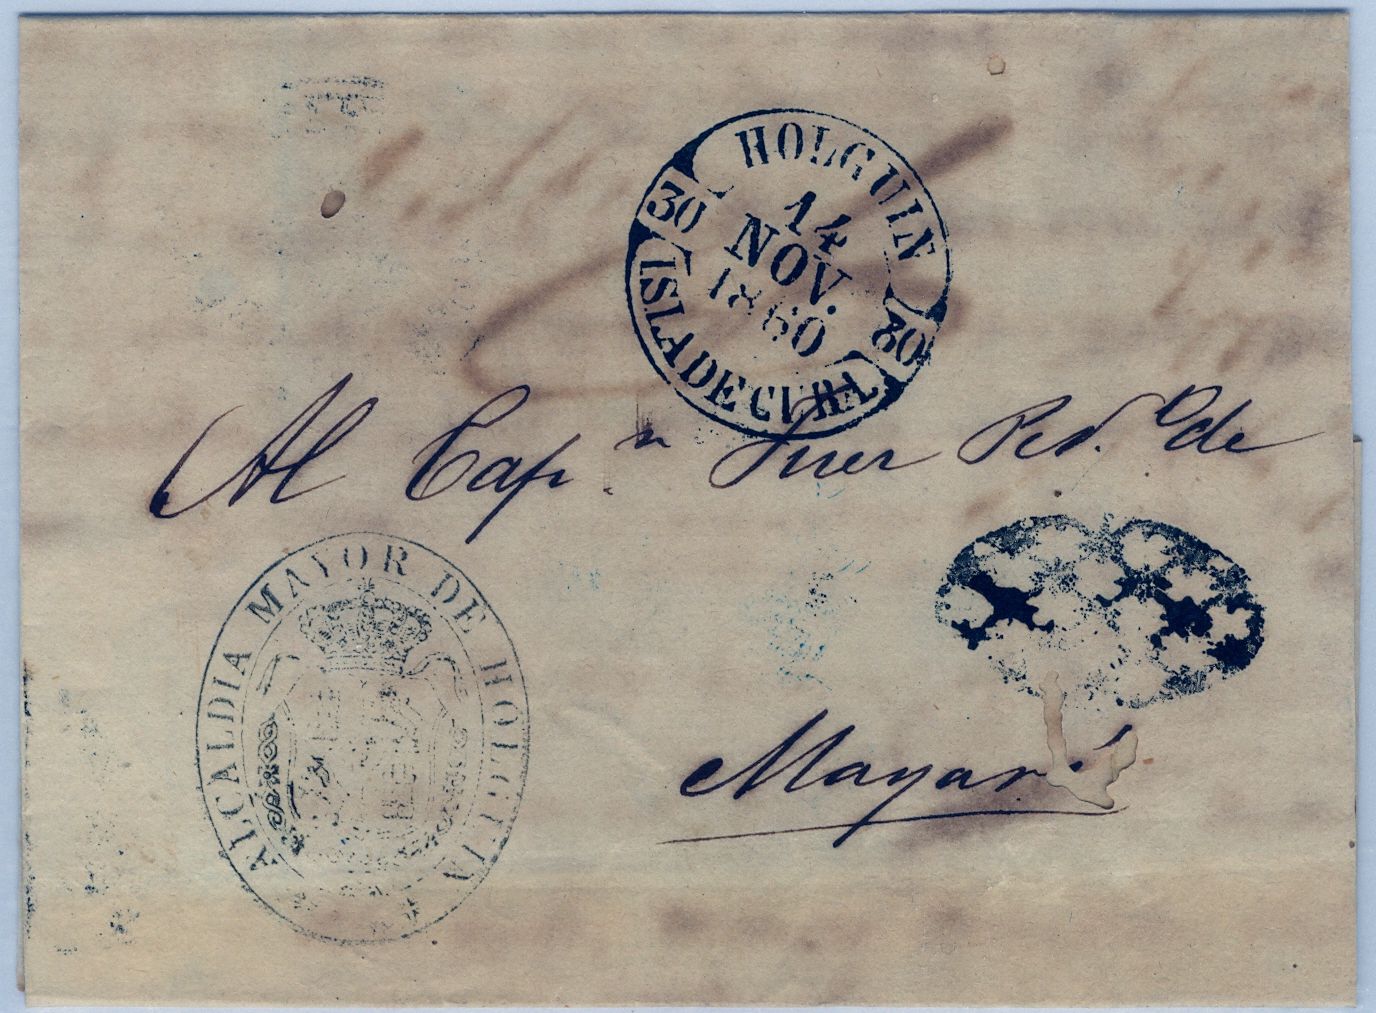 HOLGUIN
14
NOV.
1860
30 30
ISLA DE CUBA
Al Cap.n Juez Ped.o de
ALCALDIA MAYOR DE HOLGUIN
Mayarí